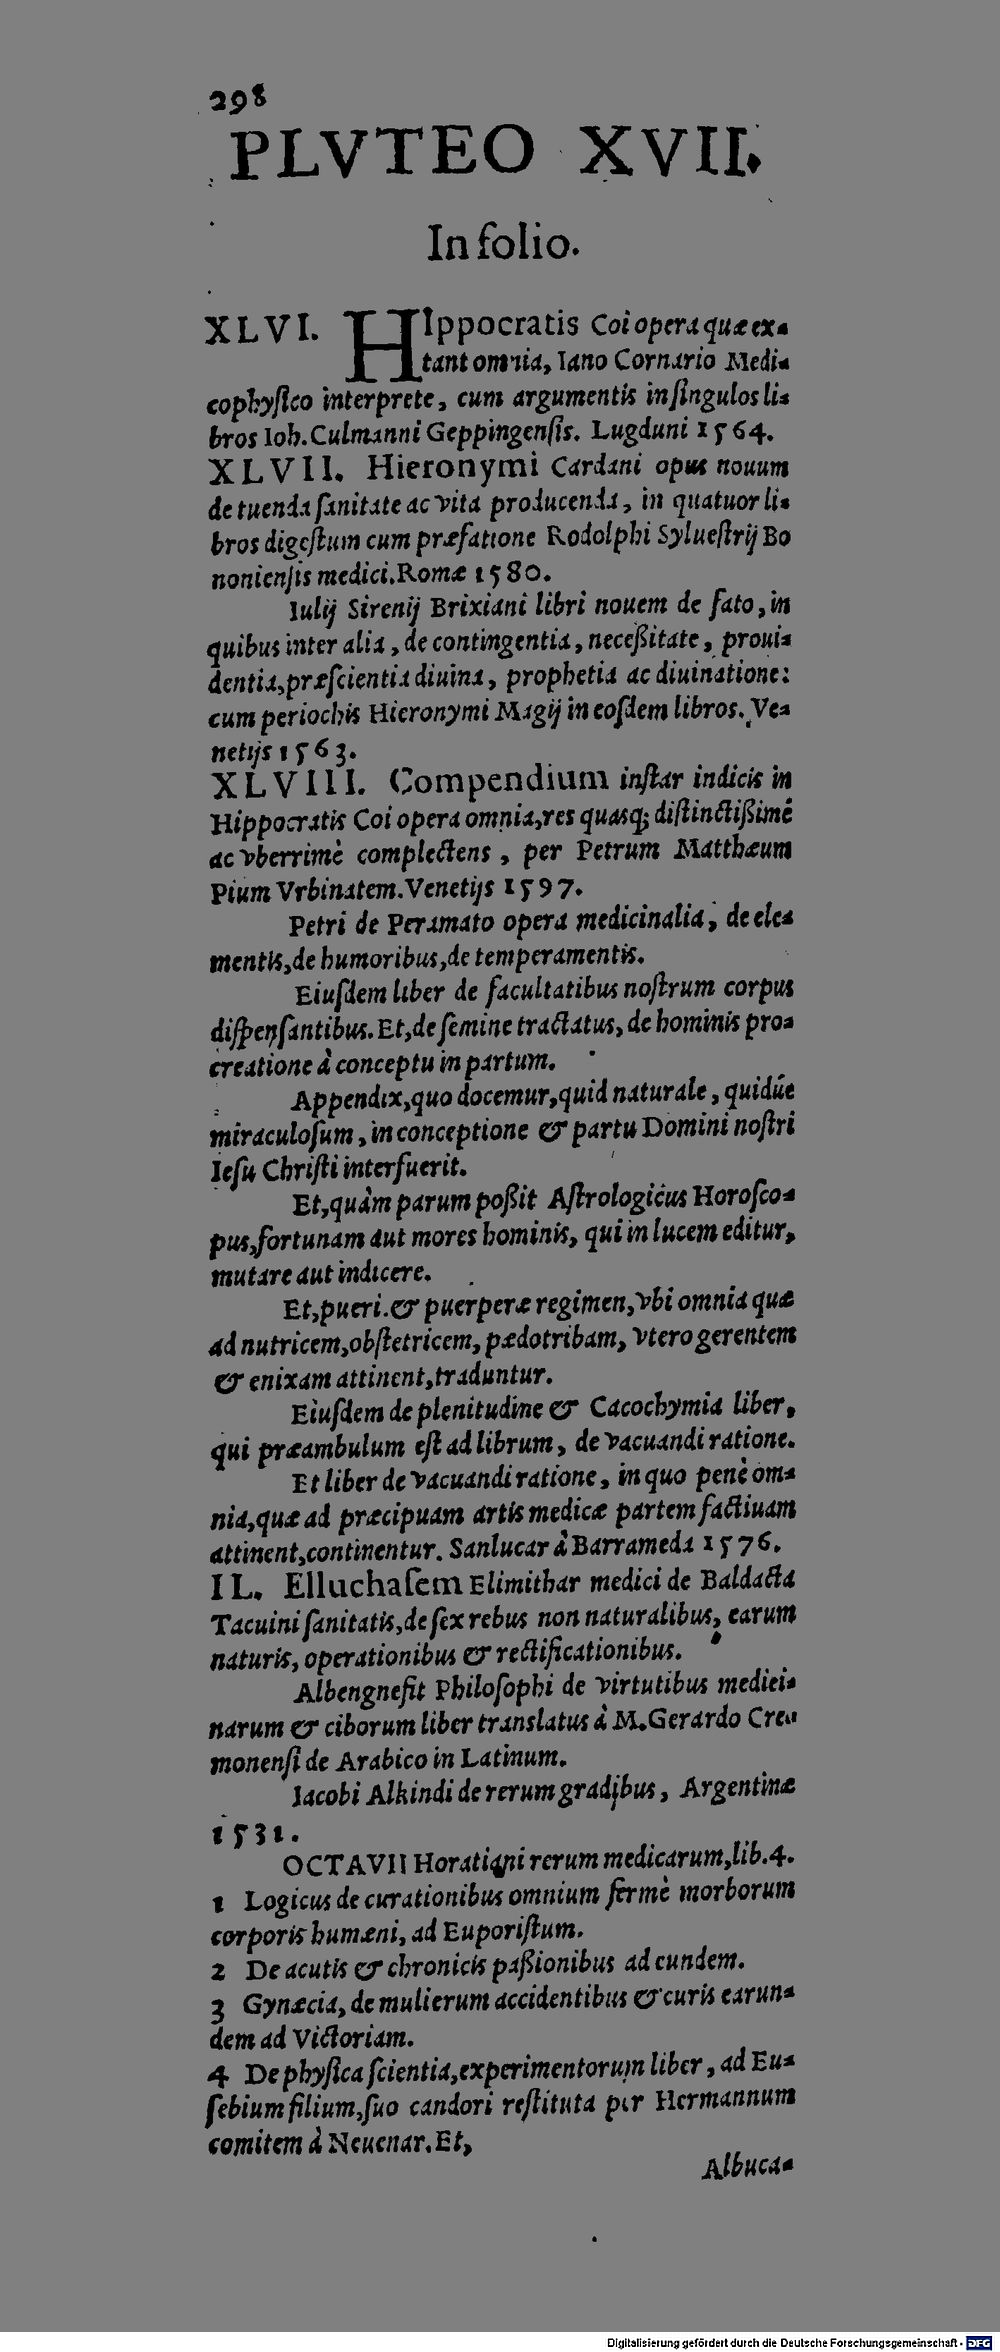 298
PLVTEO XVII.
In folio.
XLVI. HIppocratis Coi opera quæ ex-
tant omnia, Iano Cornario Medi-
cophyſico interprete, cum argumentis in ſingulos li-
bros Ioh. Culmanni Geppingenſis. Lugduni 1564.
XLVII. Hieronymi Cardani opus nouum
de tuenda ſanitate ac vita producenda, in quatuor li-
bros digeſtum cum præfatione Rodolphi Sylueſtrij Bo
nonienſis medici. Romæ 1580.
Iulij Sirenij Brixiani libri nouem de fato, in
quibus inter alia, de contingentia, neceßitate, proui-
dentia, præſcientia diuina, prophetia ac diuinatione:
cum periochis Hieronymi Magij in eoſdem libros. Ve-
netijs 1563.
XLVIII. Compendium inſtar indicis in
Hippocratis Coi opera omnia, res quasq; diſtinctißimé
ac vberrimè complectens, per Petrum Matthæum
Pium Vrbinatem. Venetijs 1597.
Petri de Peramato opera medicinalia, de ele-
mentis, de humoribus, de temperamentis.
Eiuſdem liber de facultatibus noſtrum corpus
diſpenſantibus. Et, de ſemine tractatus, de hominis pro-
creatione à conceptu in partum.
Appendix, quo docemur, quid naturale, quidúe
miraculoſum, in conceptione & partu Domini noſtri
Ieſu Chriſti interfuerit.
Et, quàm parum poßit Aſtrologicus Horoſco-
pus, fortunam aut mores hominis, qui in lucem editur,
mutare aut indicere.
Et, pueri. & puerperæ regimen, vbi omnia quæ
ad nutricem, obſtetricem, pædotribam, vtero gerentem
& enixam attinent, traduntur.
Eiuſdem de plenitudine & Cacochymia liber,
qui præambulum eſt ad librum, de vacuandi ratione.
Et liber de vacuandi ratione, in quo penè om-
nia, quæ ad præcipuam artis medicæ partem factiuam
attinent, continentur. Sanlucar à Barrameda 1576.
IL. Elluchaſem Elimithar medici de Baldacta
Tacuini ſanitatis, de ſex rebus non naturalibus, earum
naturis, operationibus & rectificationibus.
Albengnefit Philoſophi de virtutibus medici-
narum & ciborum liber translatus à M. Gerardo Cre-
monenſi de Arabico in Latinum.
Iacobi Alkindi de rerum gradibus, Argentinæ
1531.
OCTAVII Horatiani rerum medicarum, lib. 4.
1 Logicus de curationibus omnium fermè morborum
corporis humæni, ad Euporiſtum.
2 De acutis & chronicis paßionibus ad eundem.
3 Gynæcia, de mulierum accidentibus & curis earun-
dem ad Victoriam.
4 De phyſica ſcientia, experimentorum liber, ad Eu-
ſebium filium, ſuo candori reſtituta per Hermannum
comitem à Neuenar. Et,
Albuca-
Digitalisierung gefördert durch die Deutsche Forschungsgemeinschaft - DFG